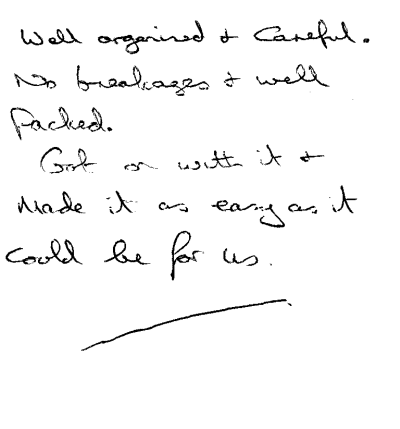 Well organised & Careful.
No breakages & well
Packed.
Got on with it &
Made it as easy as it
Could be for us.